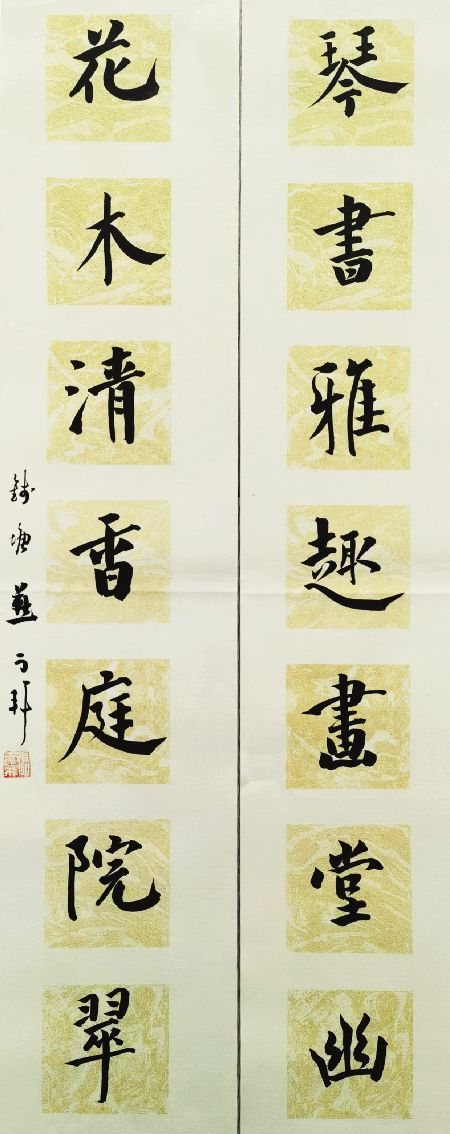 琴書雅趣畫堂幽
花木清香庭院翠
錢塘